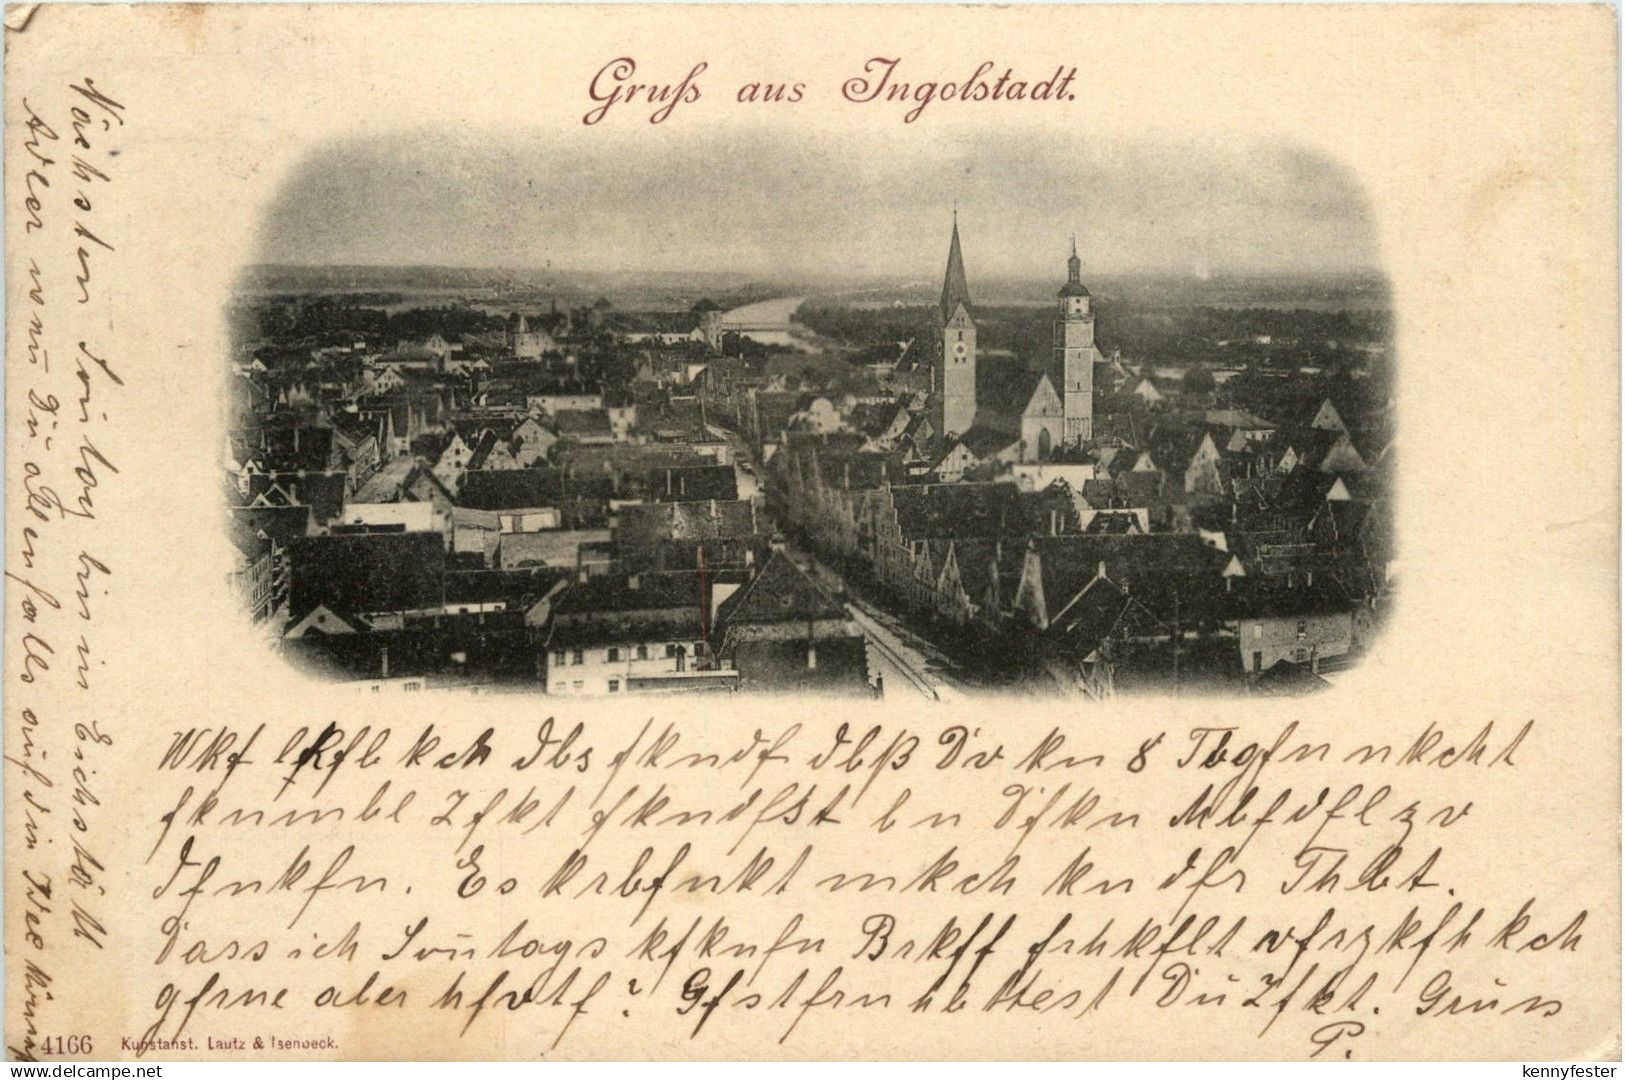 Gruß aus Ingolstadt.
Nächsten Sontag bin in Eichstätt
Adler wenn Du allenfalls auf die Idee
Wkf lkflb kch dbs fkndf dbß Dv kn 8 Tbgfn nkcht
fknmbl Zfkt fkndfst bn Dfkn Mbfdfl zv
dfnkfn. Es krbfnkt mkch kn dfr Thbt.
Dass ich Sontags kfknfn Brkff frhkflt vfrzkfh kch
gfrne aber hfvtf? Gfstfrn hbttest Du Zfkt. Gruss
P.
4166 Kunstanst. Lautz & Isenbeck.
delcampe.net
kennyfester